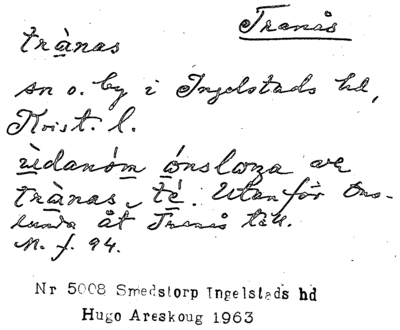 Tranås
trànas
sn o. by i Ingelstads hd,
Krist. l.
ùdanóm ónslonza ave
trànas, té. Utanför Ons-
lunda åt Tranås till.
M. f. 94.
Nr 5008 Smedstorp Ingelstads hd
Hugo Areskoug 1963